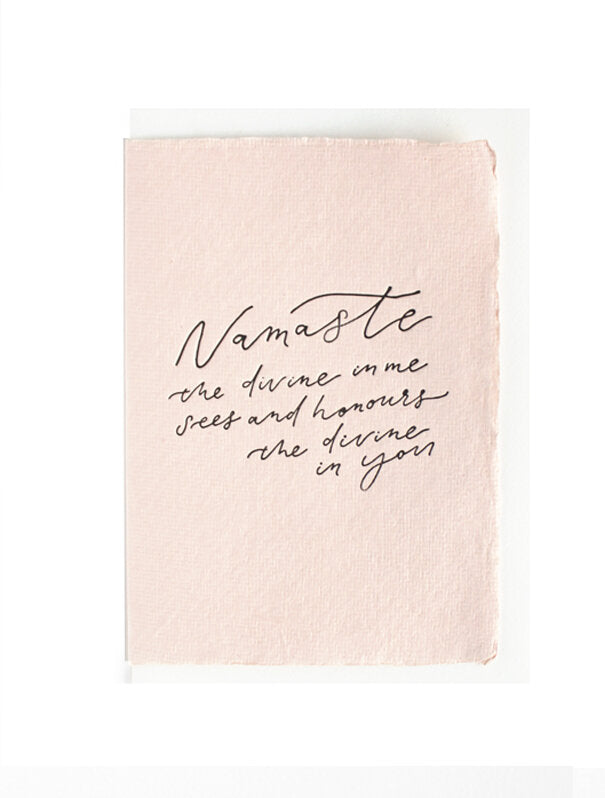 Namaste
the divine in me
sees and honours
the divine
in you